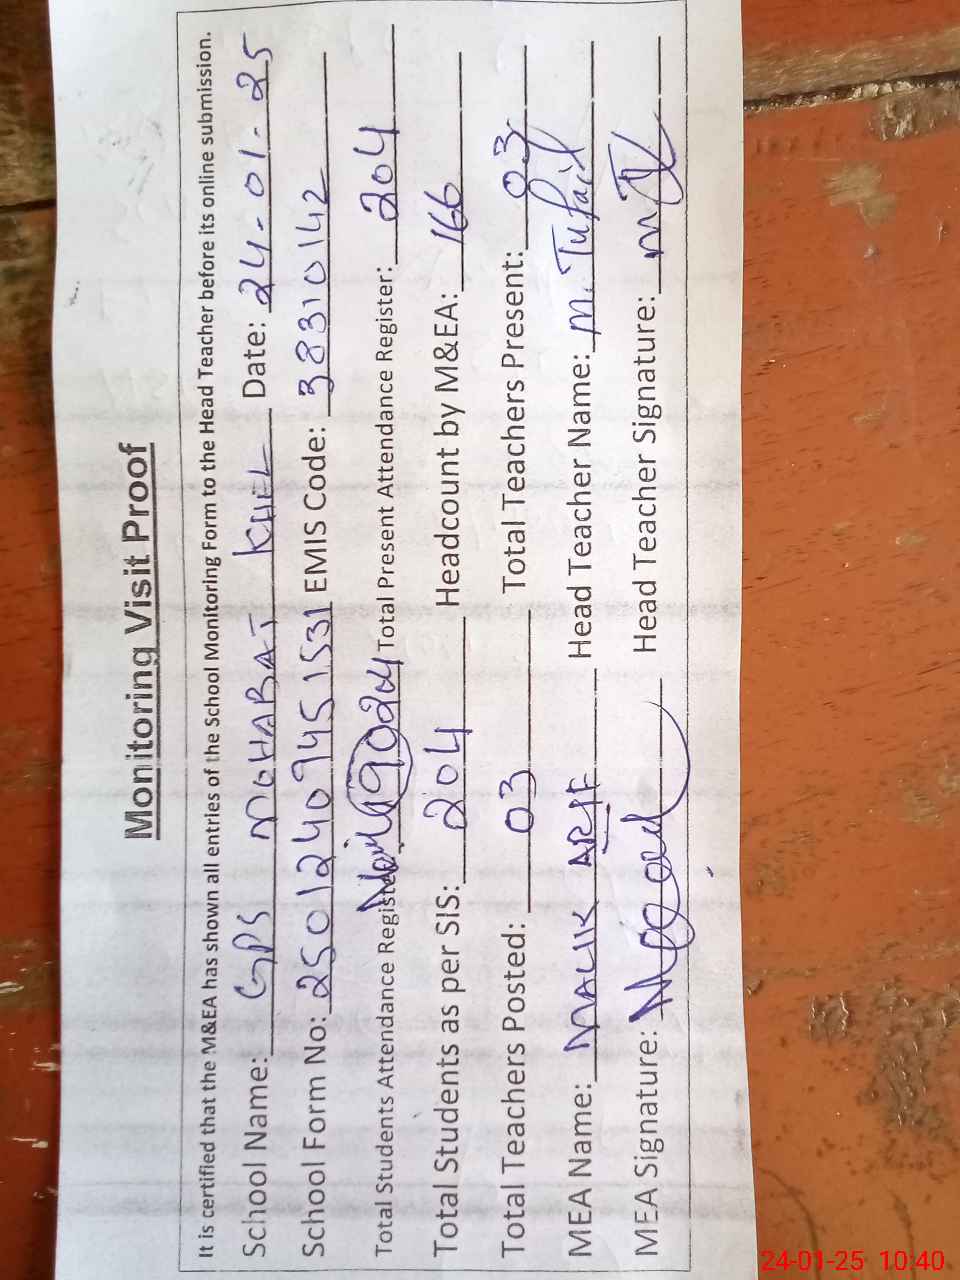 Monitoring Visit Proof
It is certified that the M&EA has shown all entries of the School Monitoring Form to the Head Teacher before its online submission.
School Name: GPS MOHABAT KHEL Date: 24-01-25
School Form No: 25012409451531 EMIS Code: 38310142
Total Students Attendance Register: 204 Total Present Attendance Register: 204
Total Students as per SIS: 204 Headcount by M&EA: 166
Total Teachers Posted: 03 Total Teachers Present: 03
MEA Name: MALIK ARIF Head Teacher Name: M. Tufail
MEA Signature: Head Teacher Signature:
24-01-25 10:40